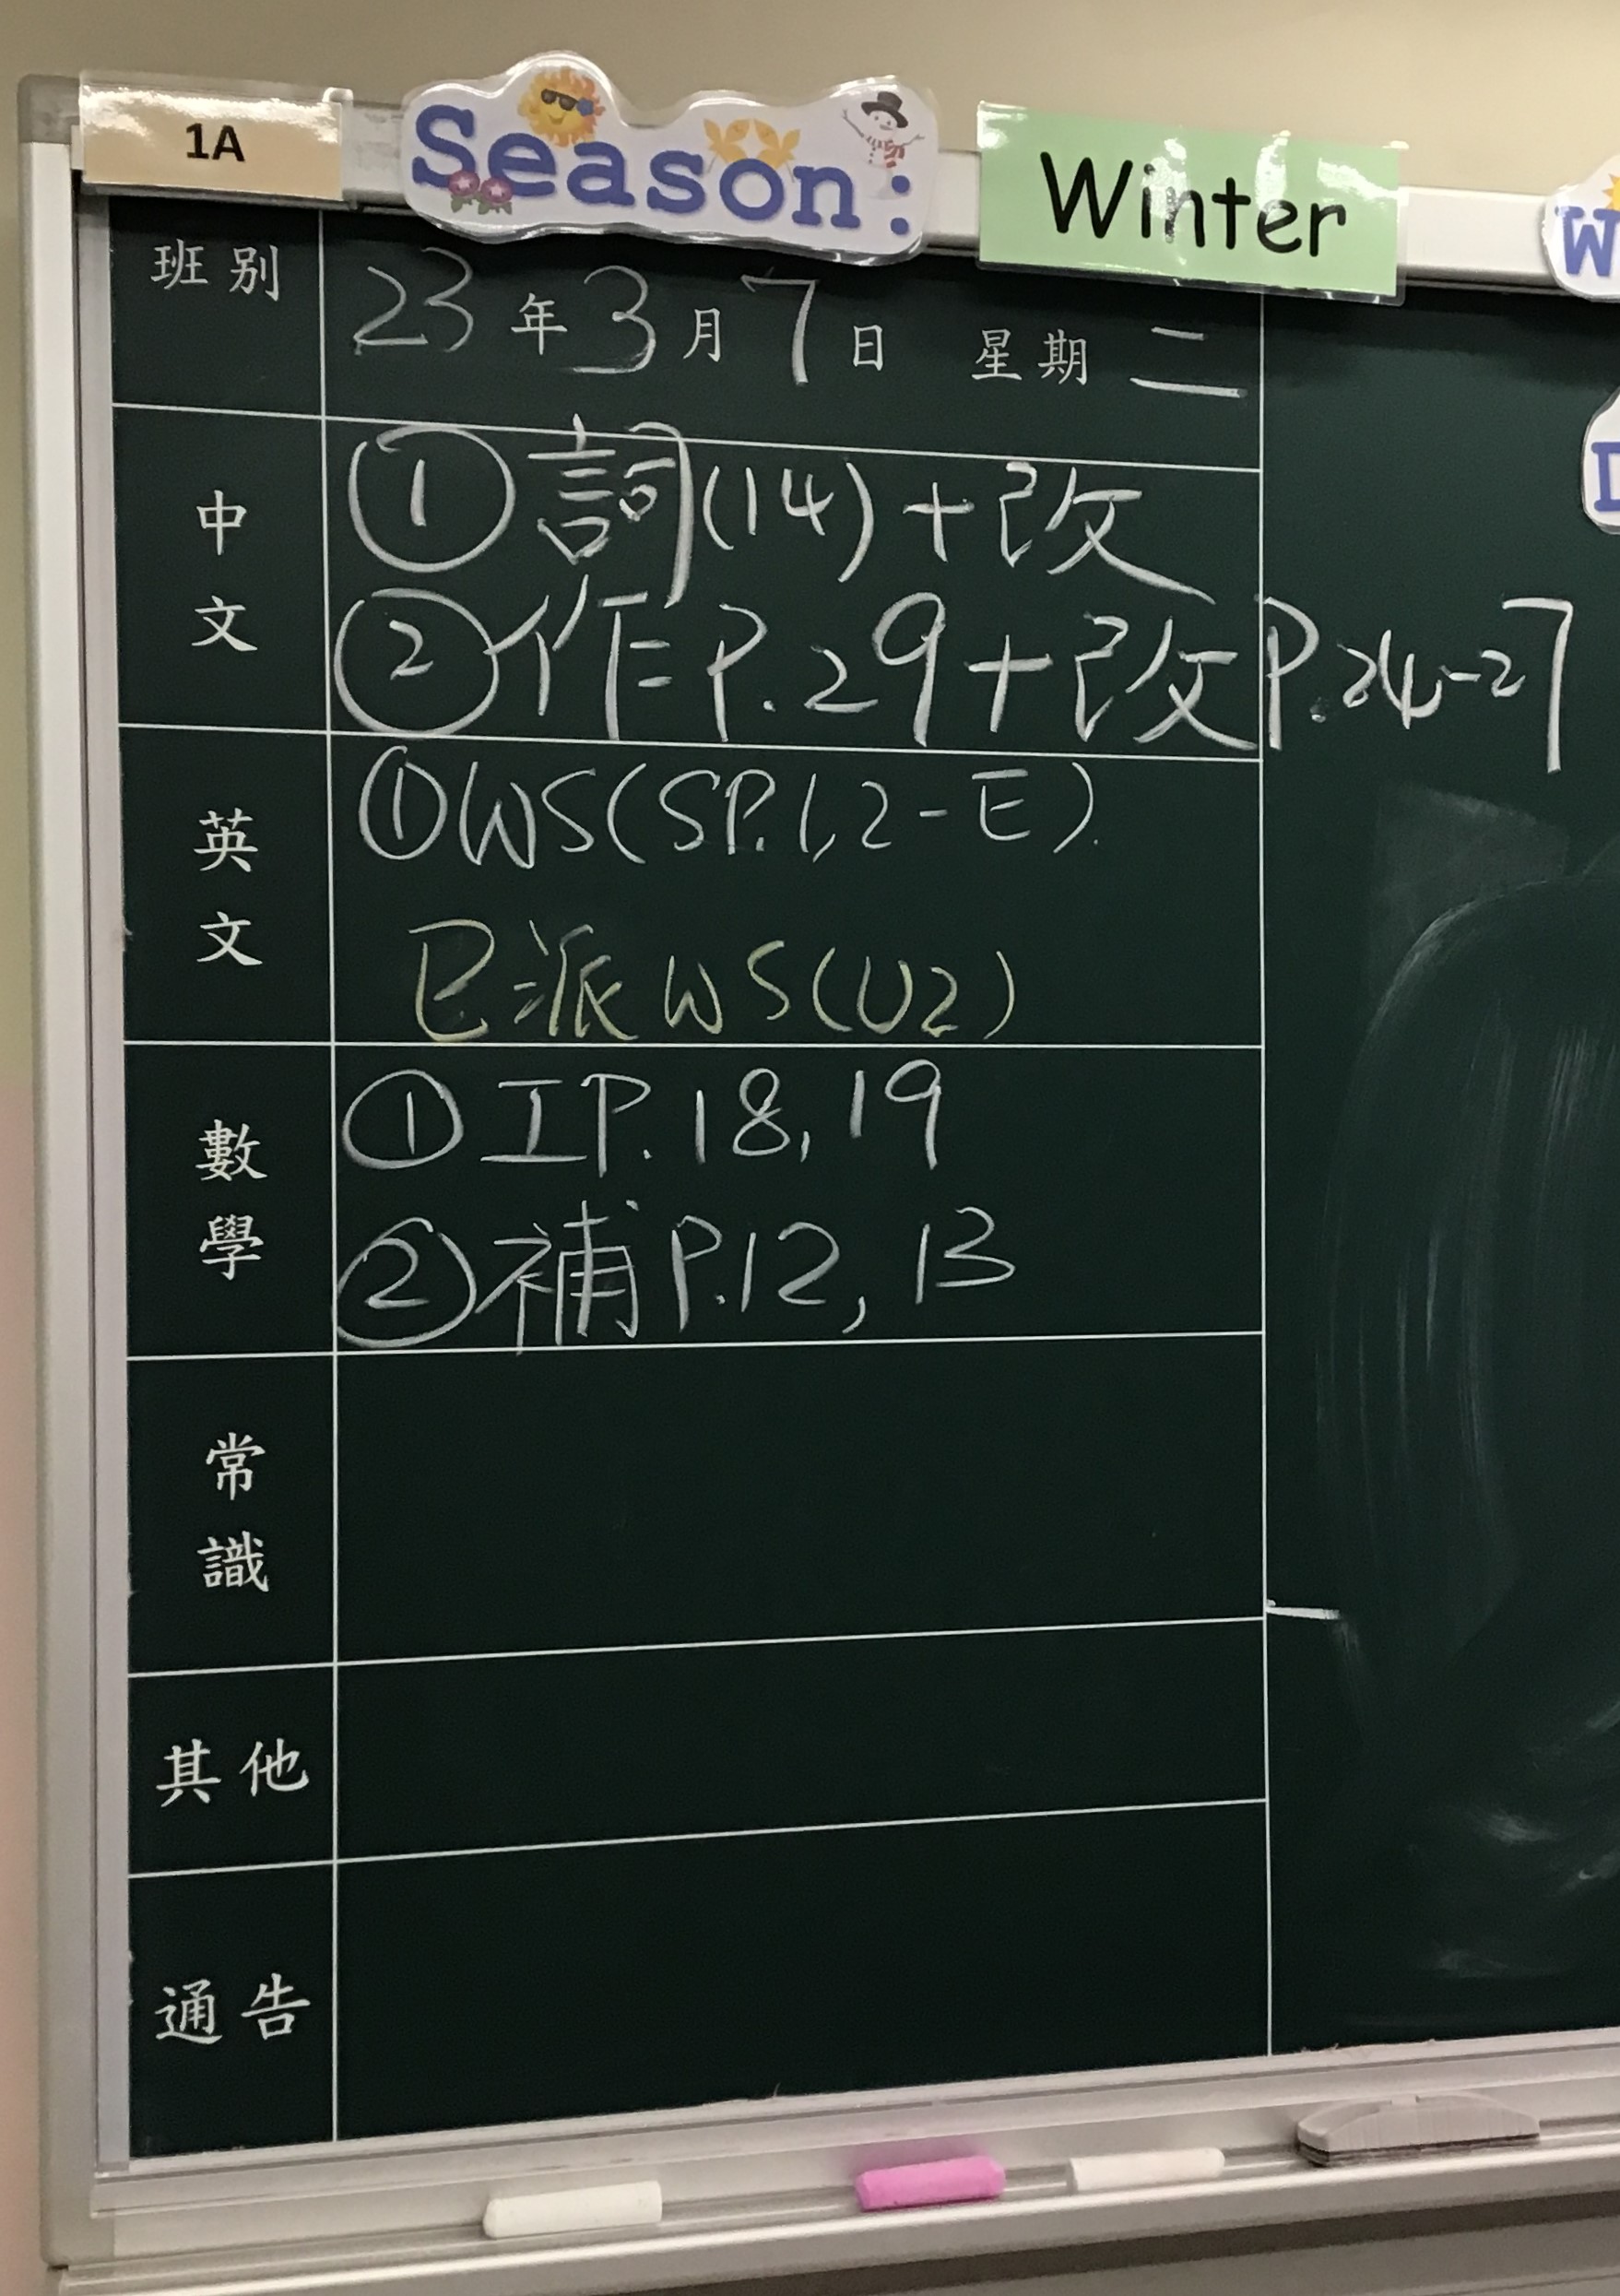 1A
Season:
Winter
W
班別
23年3月7日 星期二
中文
①詞(14)+改
②作P.29+改P.24-27
英文
①WS(SP.1,2-E).
已派WS(U2)
數學
①工P.18,19
②補P.12,13
常識
其他
通告